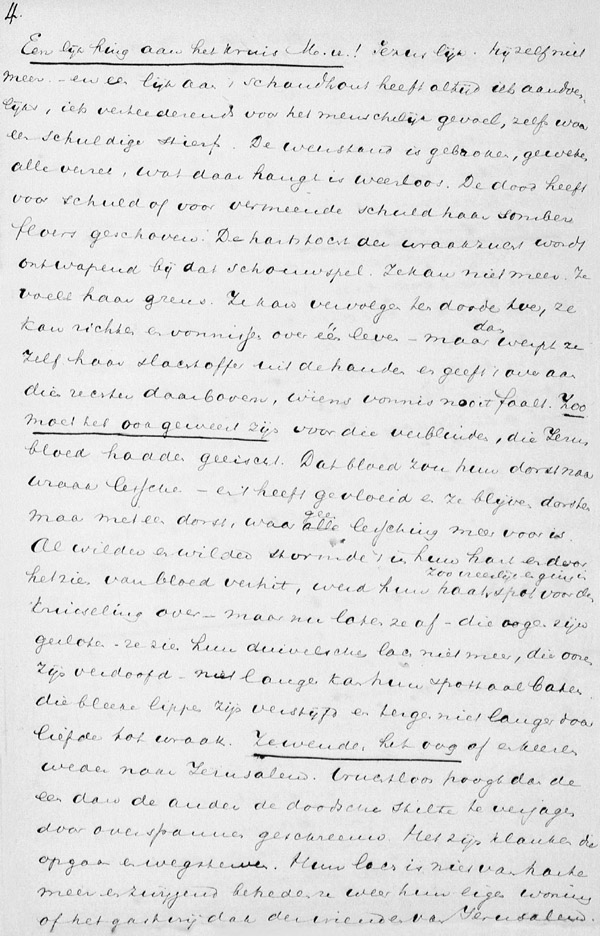 4.
Een lijk hing aan het kruis M. v.! Jezus lijk. Hij zelf niet
meer. - en een lijk aan 't schandhout heeft altijd iets aandoen
lijks, iets verteederends voor het menschelijk gevoel, zelfs waar
een schuldige stierf. De weerstand is gebroken, geweken
alle verzet, wat daar hangt is weerloos. De dood heeft
voor schuld of voor vermeende schuld haar somber
floers geschoven. De hartstocht der wraakzucht wordt
ontwapend bij dat schouwspel. Ze kan niet meer. Ze
voelt haar grens. Ze kan vervolgen ten doode toe, ze
kan richten en vonnissen over één leven - maar dan werpt ze
zelf haar slachtoffer uit de handen en geeft 't over aan
dien rechter daarboven, wiens vonnis nooit faalt. Zoo
moet het ook geweest zijn voor die verblinden, die Jezus
bloed hadden geëischt. Dat bloed zou hun dorst naar
wraak lesschen - en 't heeft gevloeid en ze blijven dorsten
maar met een dorst, waar geen alle lessching meer voor is.
Al wilder en wilder stormde 't in hun hart en door
het zien van bloed verhit, werd hun haat, spot voor den
kruiseling over - maar nu laten ze af - die oogen zijn
gesloten - ze zien hun duivelschen lach niet meer, die ooren
zijn verdoofd - niet langer kan hun spottaal baten
die bleeke lippen zijn verstijfd en tergen niet langer door
liefde tot wraak. Ze wenden het oog af en keeren
weder naar Jeruzalem. Vruchtloos poogt dan de
een dan de ander de doodsche stilte te verjagen
door overspannen geschreeuw. Het zijn klanken die
opgaan en wegsterven. Hun lach is niet van harte
meer en zwijgend betreden ze weer hun eigen woning
of het gastvrij dak der vrienden van Jeruzalem.